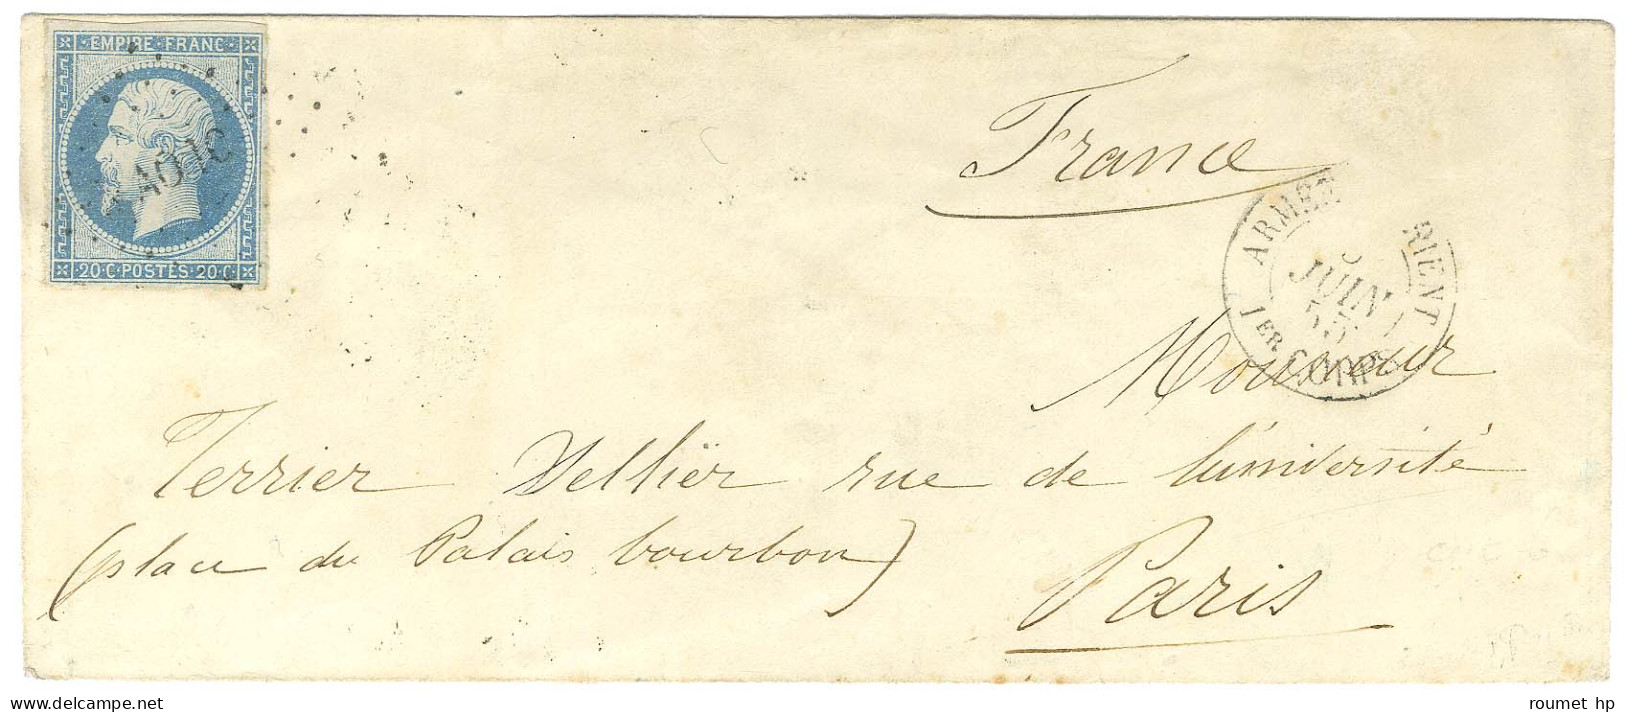 EMPIRE FRANC
20 C POSTES 20 C
France
ARMEE RIENT
5 JUIN 55
1ER CORPS
Monsieur
Terrier Dellier rue de l'université
(place du Palais bourbon)
Paris
roumet hp